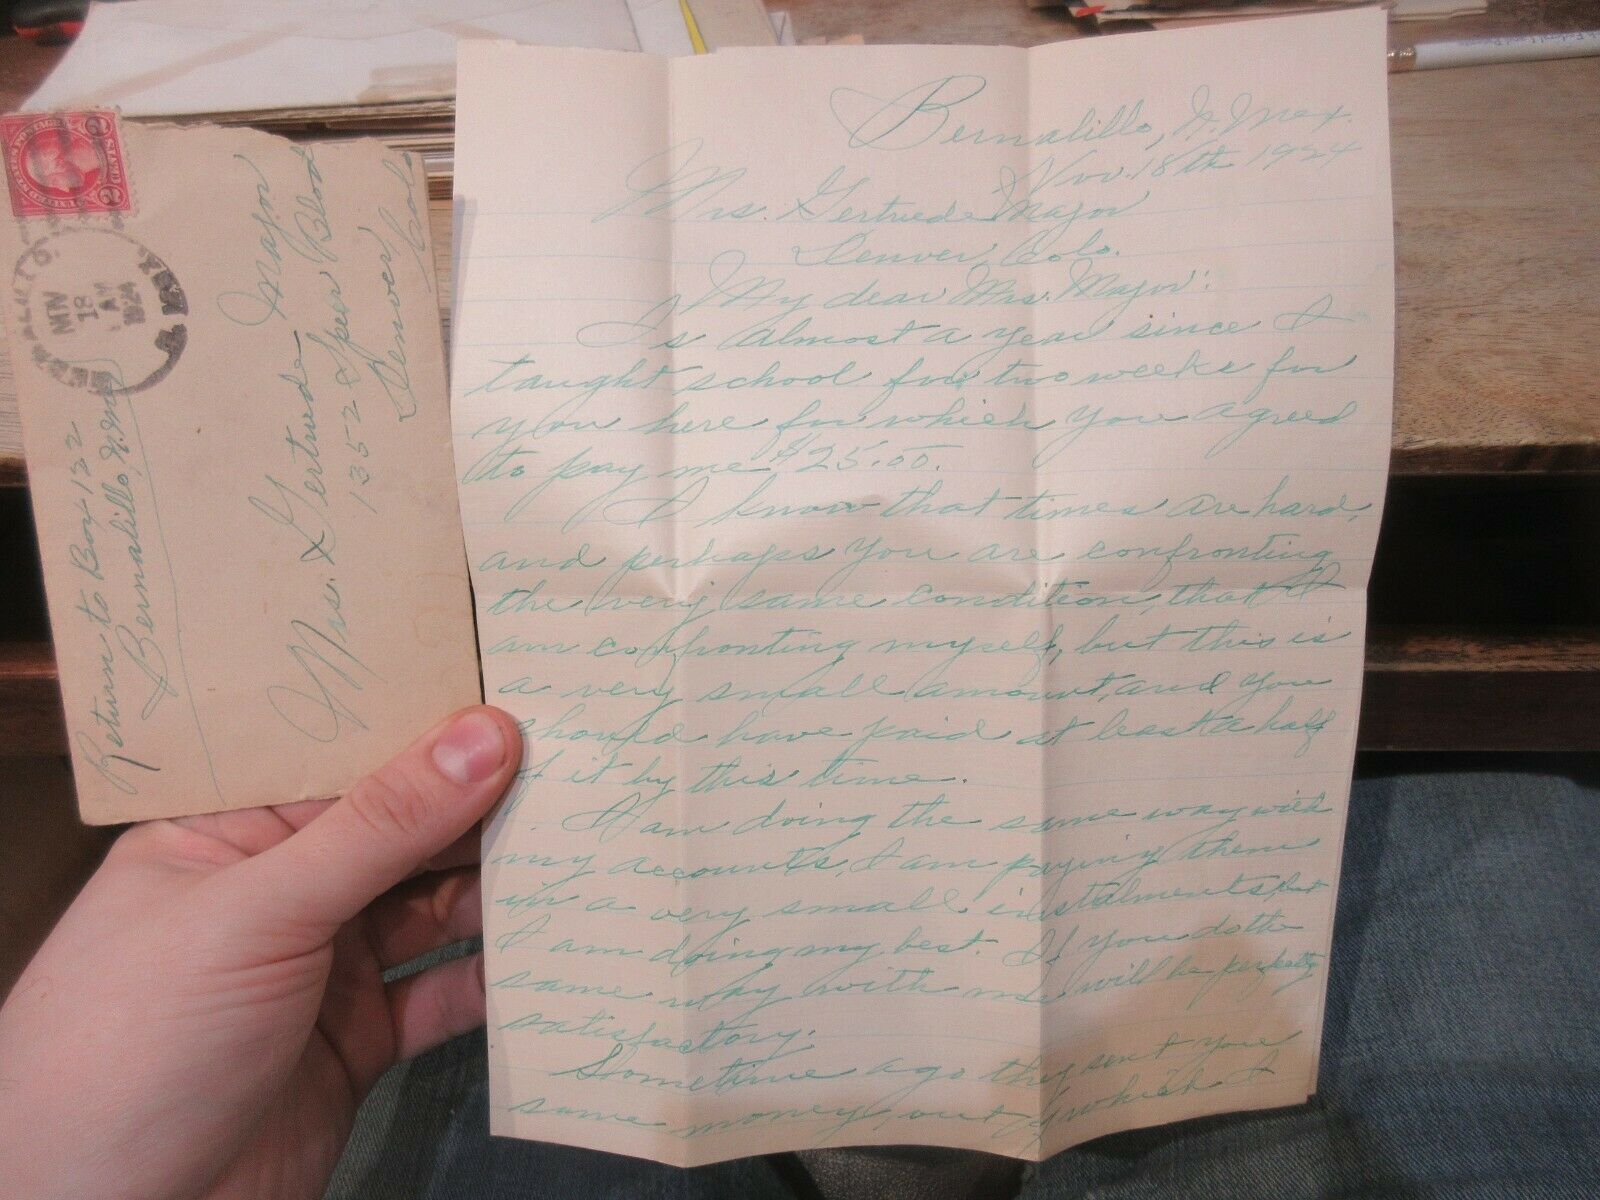 UNITED STATES POSTAGE
2 CENTS 2
BERNALILLO
18
AM
1924
N. MEX.
Return to Box 122
Bernalillo, N. Mex.
Mrs. Gertrude Major
1352 Speer Blvd
Denver,
Colo
Bernalillo, N. Mex.
Nov. 18th 1924
Mrs. Gertrude Major
Denver, Colo.
My dear Mrs. Major:
Is almost a year since I
taught school for two weeks for
you here for which you agreed
to pay me $25.00.
I know that times are hard,
and perhaps you are confronting
the very same condition, that I
am confronting myself, but this is
a very small amount, and you
should have paid at least a half
of it by this time.
I am doing the same way with
my accounts, I am paying them
in a very small instalments, but
I am doing my best. If you do the
same way with me will be perfectly
satisfactory.
Sometime ago they sent you
some money, out of which I